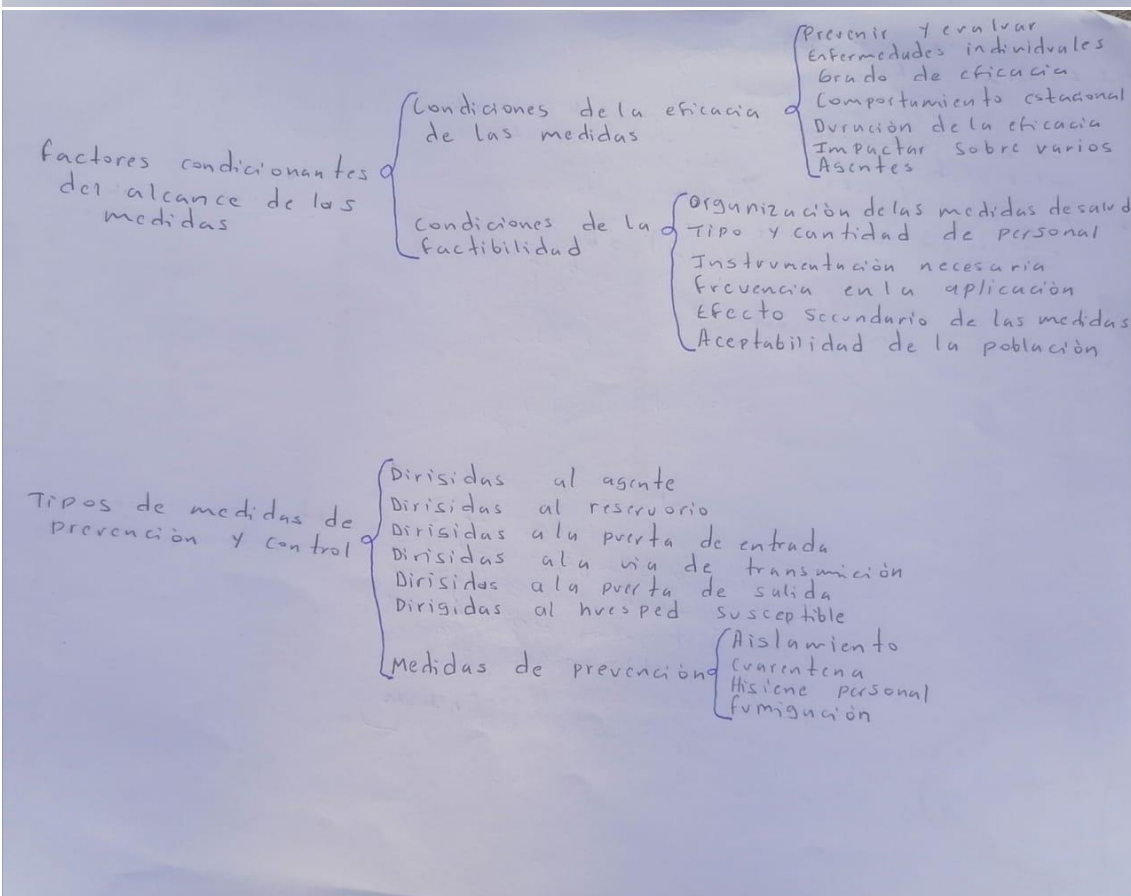 Factores condicionantes
del alcance de las
medidas
Condiciones de la eficacia
de las medidas
Prevenir y evaluar
Enfermedades individuales
Grado de eficacia
Comportamiento estacional
Duración de la eficacia
Impactar sobre varios
Agentes
Condiciones de la
factibilidad
Organización de las medidas de salud
Tipo y cantidad de personal
Instrumentación necesaria
frecuencia en la aplicación
Efecto secundario de las medidas
Aceptabilidad de la población
Tipos de medidas de
prevención y control
Dirigidas al agente
Dirigidas al reservorio
Dirigidas a la puerta de entrada
Dirigidas a la via de transmición
Dirigidas a la puerta de salida
Dirigidas al huesped susceptible
Medidas de prevención
Aislamiento
Cuarentena
Higiene personal
fumigación